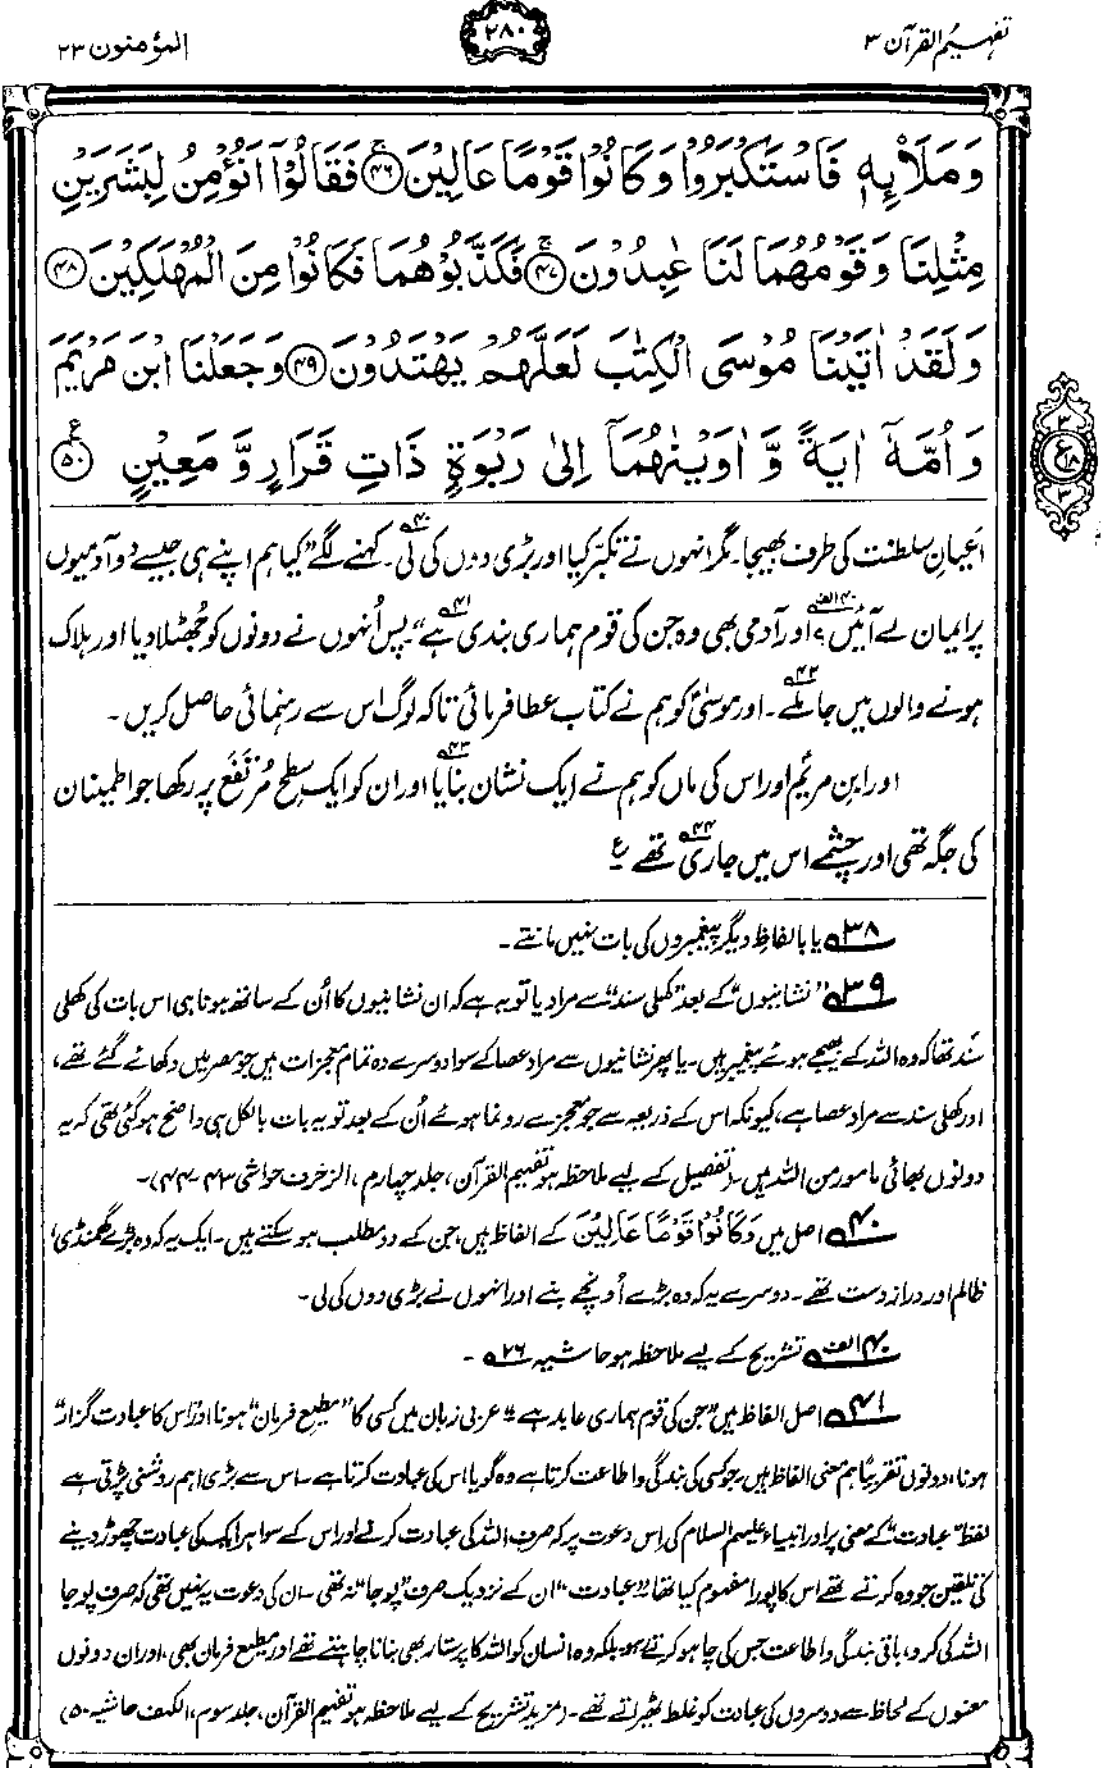 تفہیم القرآن ۳
۲۸۰
المؤمنون ۲۳
وَمَلَا۟ئِهٖ فَاسْتَكْبَرُوْا وَكَانُوْا قَوْمًا عَالِيْنَ ۚ۝۴۶ فَقَالُوْۤا اَنُؤْمِنُ لِبَشَرَيْنِ
مِثْلِنَا وَقَوْمُهُمَا لَنَا عٰبِدُوْنَ ۚ۝۴۷ فَكَذَّبُوْهُمَا فَكَانُوْا مِنَ الْمُهْلَكِيْنَ ۝۴۸
وَلَقَدْ اٰتَيْنَا مُوْسَى الْكِتٰبَ لَعَلَّهُمْ يَهْتَدُوْنَ ۝۴۹ وَجَعَلْنَا ابْنَ مَرْيَمَ
وَاُمَّهٗۤ اٰيَةً وَّ اٰوَيْنٰهُمَاۤ اِلٰى رَبْوَةٍ ذَاتِ قَرَارٍ وَّ مَعِيْنٍ ۝۵۰ ع
۳ ع ۱۸ ۳
اعیانِ سلطنت کی طرف بھیجا۔ مگر انہوں نے تکبّر کیا اور بڑی دوں کی لی۴۰۔ کہنے لگے "کیا ہم اپنے ہی جیسے دو آدمیوں
پر ایمان لے آئیں۴۰الف؟ اور آدمی بھی وہ جن کی قوم ہماری بندی ہے"۴۱۔ پس اُنہوں نے دونوں کو جُھٹلا دیا اور ہلاک
ہونے والوں میں جا ملے۴۲۔ اور موسیٰؑ کو ہم نے کتاب عطا فرمائی تاکہ لوگ اس سے رہنمائی حاصل کریں۔
اور ابن مریمؑ اور اس کی ماں کو ہم نے ایک نشان بنایا۴۳ اور ان کو ایک سطحِ مُرتَفَع پر رکھا جو اطمینان
کی جگہ تھی اور چشمے اس میں جاری تھے۴۴ ع
۳۸؎ یا بالفاظِ دیگر پیغمبروں کی بات نہیں مانتے۔
۳۹؎ "نشانیوں" کے بعد "کھلی سند" سے مراد یا تو یہ ہے کہ ان نشانیوں کا اُن کے ساتھ ہونا ہی اس بات کی کھلی
سَند تھا کہ وہ اللہ کے بھیجے ہوئے پیغمبر ہیں۔ یا پھر نشانیوں سے مراد عصا کے سوا دوسرے وہ تمام معجزات ہیں جو مصر میں دکھائے گئے تھے،
اور کھلی سند سے مراد عصا ہے، کیونکہ اس کے ذریعہ سے جو معجزے رونما ہوئے اُن کے بعد تو یہ بات بالکل ہی واضح ہو گئی تھی کہ یہ
دونوں بھائی مامور من اللہ ہیں۔ (تفصیل کے لیے ملاحظہ ہو تفہیم القرآن، جلد چہارم، الزخرف حواشی ۴۳-۴۴)۔
۴۰؎ اصل میں وَكَانُوْا قَوْمًا عَالِيْنَ کے الفاظ ہیں، جن کے دو مطلب ہو سکتے ہیں۔ ایک یہ کہ وہ بڑے گھمنڈی،
ظالم اور دراز دست تھے۔ دوسرے یہ کہ وہ بڑے اُونچے بنے اور انہوں نے بڑی دوں کی لی۔
۴۰الف؎ تشریح کے لیے ملاحظہ ہو حاشیہ ۲۶؎۔
۴۱؎ اصل الفاظ ہیں "جن کی قوم ہماری عابد ہے"۔ عربی زبان میں کسی کا "مطیع فرمان" ہونا اور "اس کا عبادت گزار"
ہونا، دونوں تقریباً ہم معنی الفاظ ہیں۔ جو کسی کی بندگی و اطاعت کرتا ہے وہ گویا اس کی عبادت کرتا ہے۔ اس سے بڑی اہم روشنی پڑتی ہے
لفظ "عبادت" کے معنی پر اور انبیاء علیہم السلام کی اِس دعوت پر کہ صرف اللہ کی عبادت کرنے اور اس کے سوا ہر ایک کی عبادت چھوڑ دینے
کی تلقین جو وہ کرتے تھے اس کا پورا مفہوم کیا تھا۔ "عبادت" ان کے نزدیک صرف "پوجا" نہ تھی۔ ان کی دعوت یہ نہیں تھی کہ صرف پوجا
اللہ کی کرو، باقی بندگی و اطاعت جس کی چاہو کرتے رہو۔ بلکہ وہ انسان کو اللہ کا پرستار بھی بنانا چاہتے تھے اور مطیع فرمان بھی، اور ان دونوں
معنوں کے لحاظ سے دوسروں کی عبادت کو غلط ٹھیراتے تھے۔ (مزید تشریح کے لیے ملاحظہ ہو تفہیم القرآن، جلد سوم، الکہف حاشیہ ۵۰)